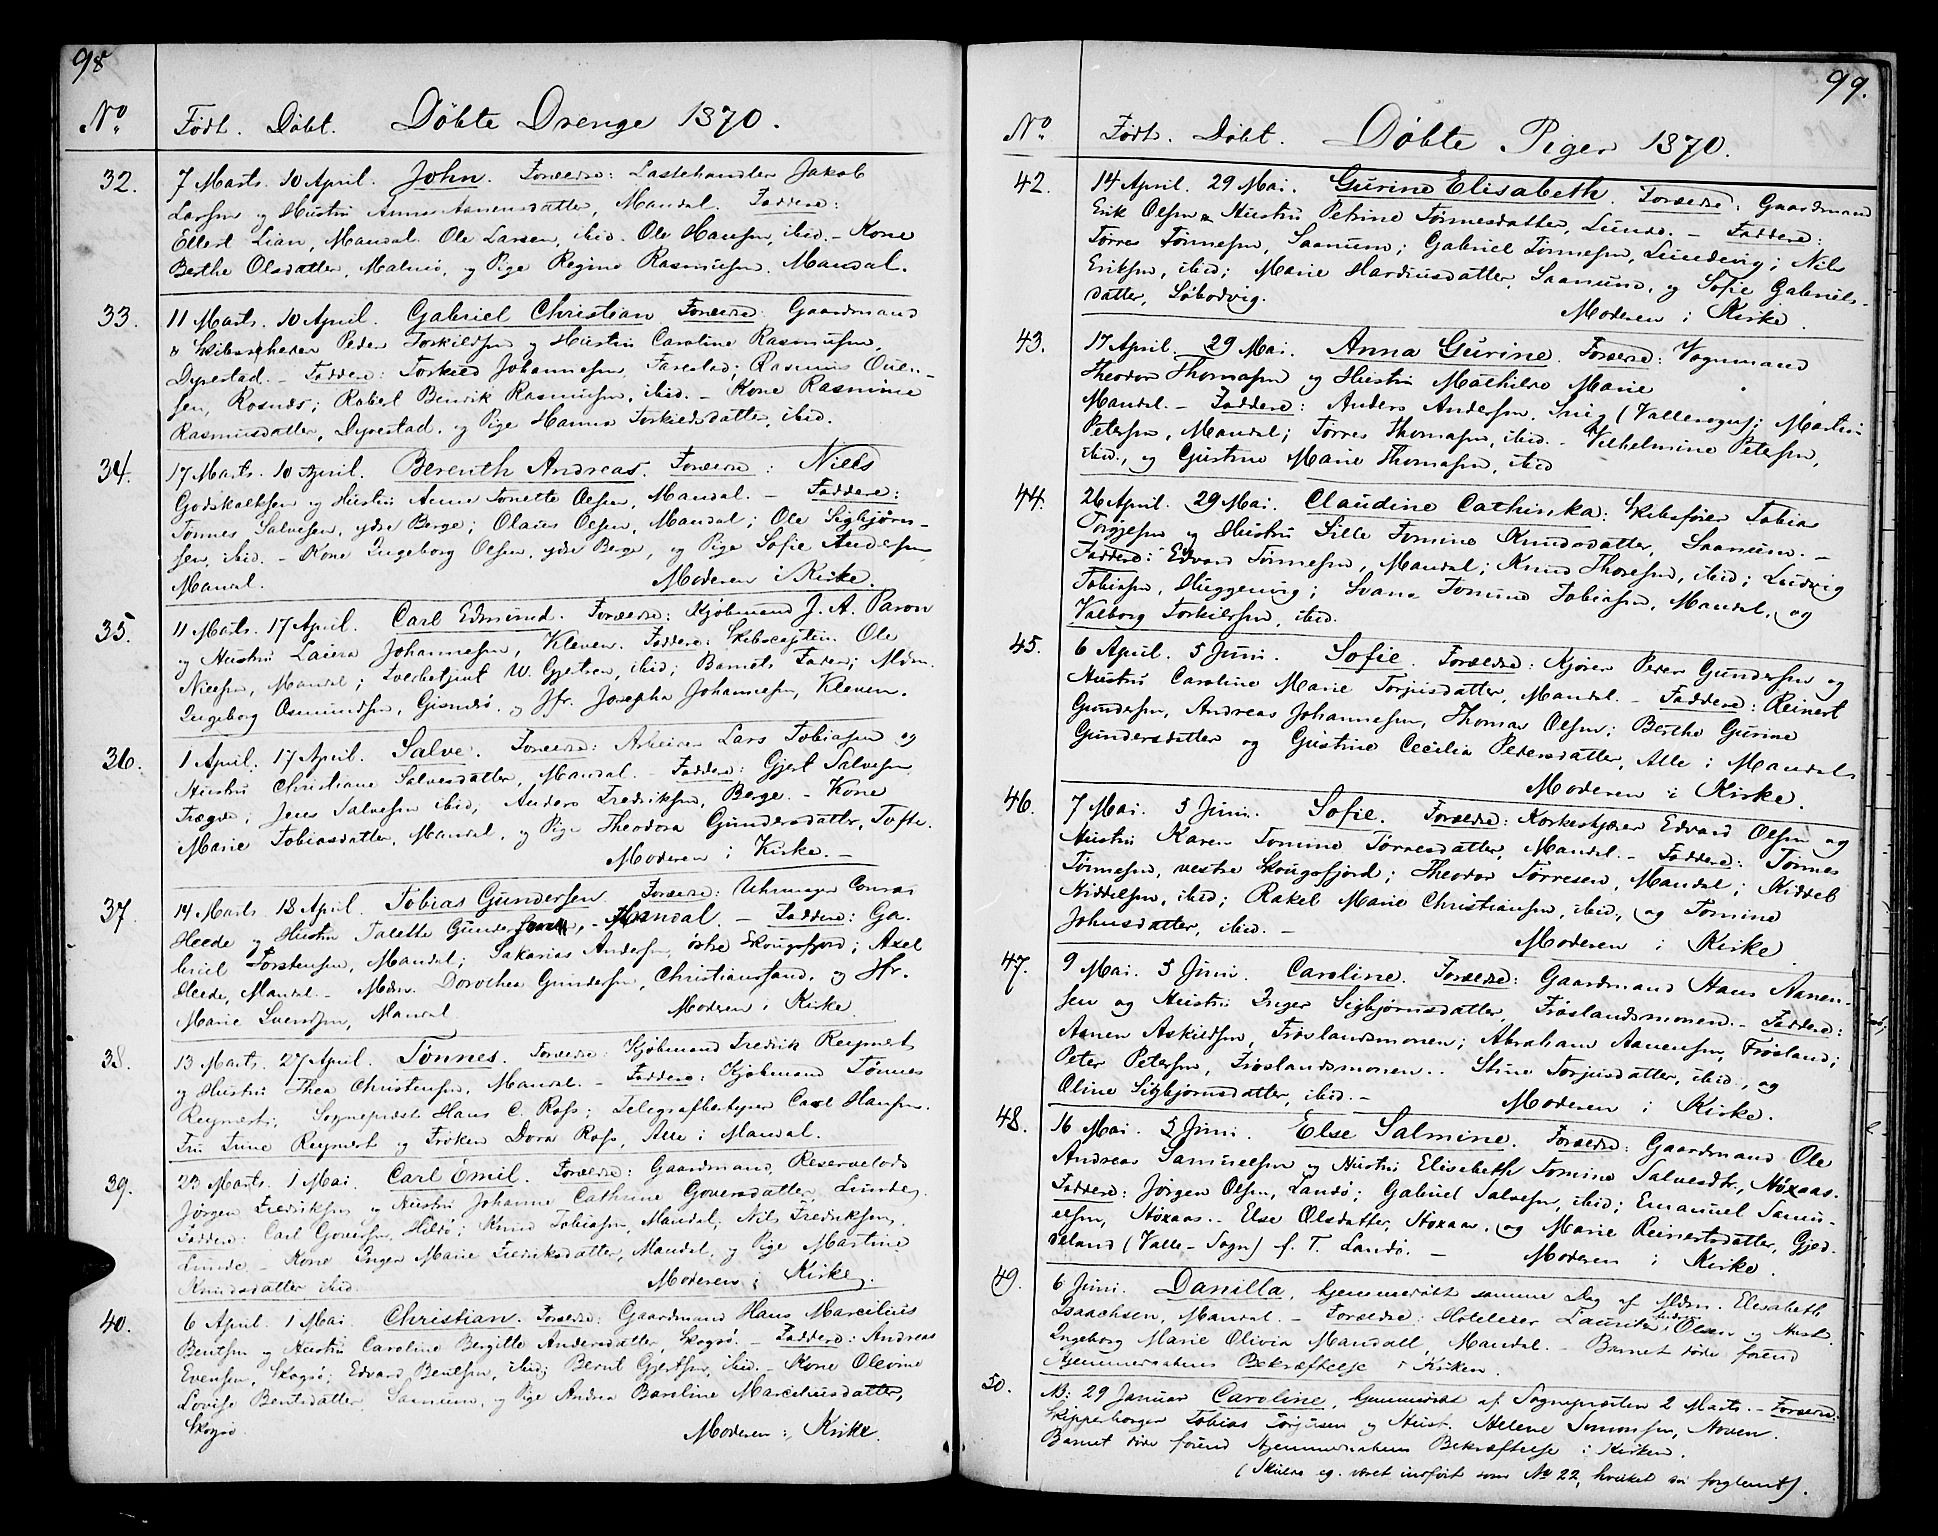 98
No. Født. Døbt. Døbte Drenge 1870.
32. 7 Marts. 10 April. John. Forældre: Lastehandler Jakob
Larsen og Hustru Anna Aanensdatter, Mandal. Faddere:
Ellert Lian, Mandal. Ole Larsen, ibid. Ole Hansen, ibid. – Kone
Berthe Olsdatter, Malmø, og Pige Regine Rasmussen. Mandal.
33. 11 Marts. 10 April. Gabriel Christian Forældre: Gaardmand
Peder Torkildsen og Hustru Caroline Rasmussen,
Dyrestad. – Faddere: Torkild Johannesen, Farestad; Rasmus Ouen-
sen, Rosnæs; Rabel Benrik Rasmussen, ibid. – Kone Rasmine
Rasmusdatter, Dyrestad. og Pige Hanna Torkildsdatter, ibid.
34. 17 Marts. 10 April. Berenth Andreas. Forældre: Niels
Godskalksen og Hustru Anne Tonette Olsen, Mandal. – Faddere:
Tønnes Salvesen, ydre Berge; Olaus Olsen, Mandal; Ole Sigbjørn-
sen, ibid. – Kone Ingeborg Olsen, ydre Berge, og Pige Sofie Andersen
Mandal. Moderen i Kirke.
35. 11 Marts. 17 April. Carl Edmund. Forældre: Kjøbmand J. A. Paron
og Hustru Laura Johannesen, Kleven. Faddere: Skibscaptein Ole
Nielsen, Mandal; W. Gjertsen, ibid; Barnets Fader; Mdm.
Ingeborg Osmundsen, Gismerø. og Jfr. Josepha Johannesen, Kleven.
36. 1 April. 17 April. Salve. Forældre: Arbeider Lars Tobiasen og
Hustru Christiane Salvesdatter, Mandal. – Faddere: Gjert Salvesen
Trægde; Jens Salvesen ibid; Anders Fredriksen, Berge. – Kone
Marie Tobiasdatter, Mandal, og Pige Theodora Gundersdatter, Tofte.
Moderen i Kirke. –
37. 14 Marts. 18 April. Tobias Gundersen. Forældre: Uhrmager Conrad
Heede og Hustru Talette Gundersen, – Mandal. – Faddere: Ga-
briel Torstensen, Mandal; Sakarias Andersen, østre Skougsfjord; Axel
Heede, Mandal. – Mdm. Dorothea Gundersen, Christianssand, og Jfr.
Marie Svendsen, Mandal Moderen i Kirke.
38. 13 Marts. 27 April. Tønnes. Forældre: Kjøbmand Fredrik Reymert
og Hustru Thea Christensen, Mandal. – Faddere: Kjøbmand Tønnes
Reymert; Sognepræst Hans C. Ross; Telegrafbestyrer Carl Hansen.
Fru Reymert og Frøken Dora Ross, Alle i Mandal.
39. 23 Marts. 1 Mai. Carl Emil. Forældre: Gaardmand, Reservelods
Jørgen Fredriksen og Hustru Johanne Cathrine Govertsdatter, Lunde.
Faddere: Carl Govertsen, Hildø; Knud Tobiasen, Mandal; Nils Fredriksen,
Lunde. – Kone Inger Marie Fredriksdatter, Mandal, og Pige Martine
Knudsdatter ibid. Moderen i Kirke.
40. 6 April. 1 Mai. Christian. Forældre: Gaardmand Hans Marcelius
Bentsen og Hustru Caroline Bergitte Andersdatter, Skogsø. – Faddere: Andreas
Evensen, Skogsø; Edvard Bentsen, ibid; Bernt Gjertsen, ibid. – Kone Olevine
Lovise Bentsdatter, Sanum, og Pige Andrea Baroline Marceliusdatter,
Skogsø Moderen i Kirke.
99.
No. Født. Døbt. Døbte Piger 1870.
42. 14 April. 29 Mai. Gurine Elisabeth. Forældre: Gaardmand
Erik Olsen & Hustru Petrine Tønnesdatter, Lunde. – Faddere:
Tørres Tønnesen, Saanum; Gabriel Tønnesen, Lundevig; Nils
Eriksen, ibid; Marie Hardiusdatter, Saanum, og Sofie Gabriels-
datter, Søbodvig. Moderen i Kirke.
43. 17 April. 29 Mai. Anna Gurine. Forældre: Vognmand
Theodor Thomasen og Hustru Mathilde Marie
Mandal. – Faddere: Anders Andersen, Snig (Vallesogn); Martin
Petersen, Mandal; Tørres Thomasen, ibid. – Vilhelmine Petersen,
ibid., og Gustine Marie Thomasen, ibid
44. 26 April. 29 Mai. Claudine Cathinka: Skibsfører Tobias
Torgjesen og Hustru Sille Tomine Knudsdatter, Saanum. –
Faddere: Edvard Tønnesen, Mandal; Knud Thoresen, ibid; Ludvig
Tobiasen, Huggenvig; Svana Tomine Tobiasen, Mandal, og
Valborg Torkildsen, ibid.
45. 6 April. 5 Juni. Sofie. Forældre: Kjører Peder Gundersen og
Hustru Caroline Marie Torjusdatter, Mandal. – Faddere: Reinert
Gundersen, Andreas Johannesen, Thomas Olsen; Berthe Gurine
Gundersdatter og Gustine Cecilia Pedersdatter, Alle i Mandal.
Moderen i Kirke.
46. 7 Mai. 5 Juni. Sofie. Forældre: Korkeskjærer Edvard Olsen og
Hustru Karen Tomine Tørresdatter, Mandal. – Faddere: Tønnes
Tønnesen, vestre Skougsfjord; Theodor Tørresen, Mandal; Kiddel
Kiddelsen, ibid; Rakel Marie Christiansen, ibid, og Tomine
Johnsdatter, ibid. – Moderen i Kirke.
47. 9 Mai. 5 Juni. Caroline. Forældre: Gaardmand Hans Aanen-
sen og Hustru Inger Sigbjørnsdatter, Frøslandsmonen. – Faddere:
Aanen Askildsen, Frøslandsmonen; Abraham Aanensen, Frøsland;
Peter Petersen, Frøslandsmonen. – Stine Torjusdatter, ibid., og
Oline Sigbjørnsdatter, ibid. – Moderen i Kirke.
48. 16 Mai. 5 Juni. Else Salmine. Forældre: Gaardmand Ole
Andreas Samuelsen og Hustru Elisabeth Tomine Salvesdtr., Støxaas.
Faddere: Jørgen Olsen, Landø; Gabriel Salvesen, ibid; Emanuel Samu-
elsen, Støxaas. – Else Olsdatter, Støxaas, og Marie Reinertsdatter, Gjed-
veland (Valle-Sogn) f. T. Landø. – Moderen i Kirke.
49. 6 Juni. Danilla, hjemmedøbt samme Dag af Mdm. Elisabeth
Isaachsen, Mandal. – Forældre: Hoteleier Laurits Olsen og Hust.
Ingeborg Marie Olivia Mandall, Mandal. – Barnet døde førend
Hjemmedaabens Bekræftelse i Kirken.
50. NB: 29 Januar Caroline, hjemmedøbt af Sognepræsten 2 Marts. – Forældre:
Skipperborger Tobias Torjusen og Hust. Helene Simonsen, Noven.
Barnet døde førend Hjemmedaabens Bekræftelse i Kirken.
(Skulde og. været indført som No 22, hvilket var forglemt).